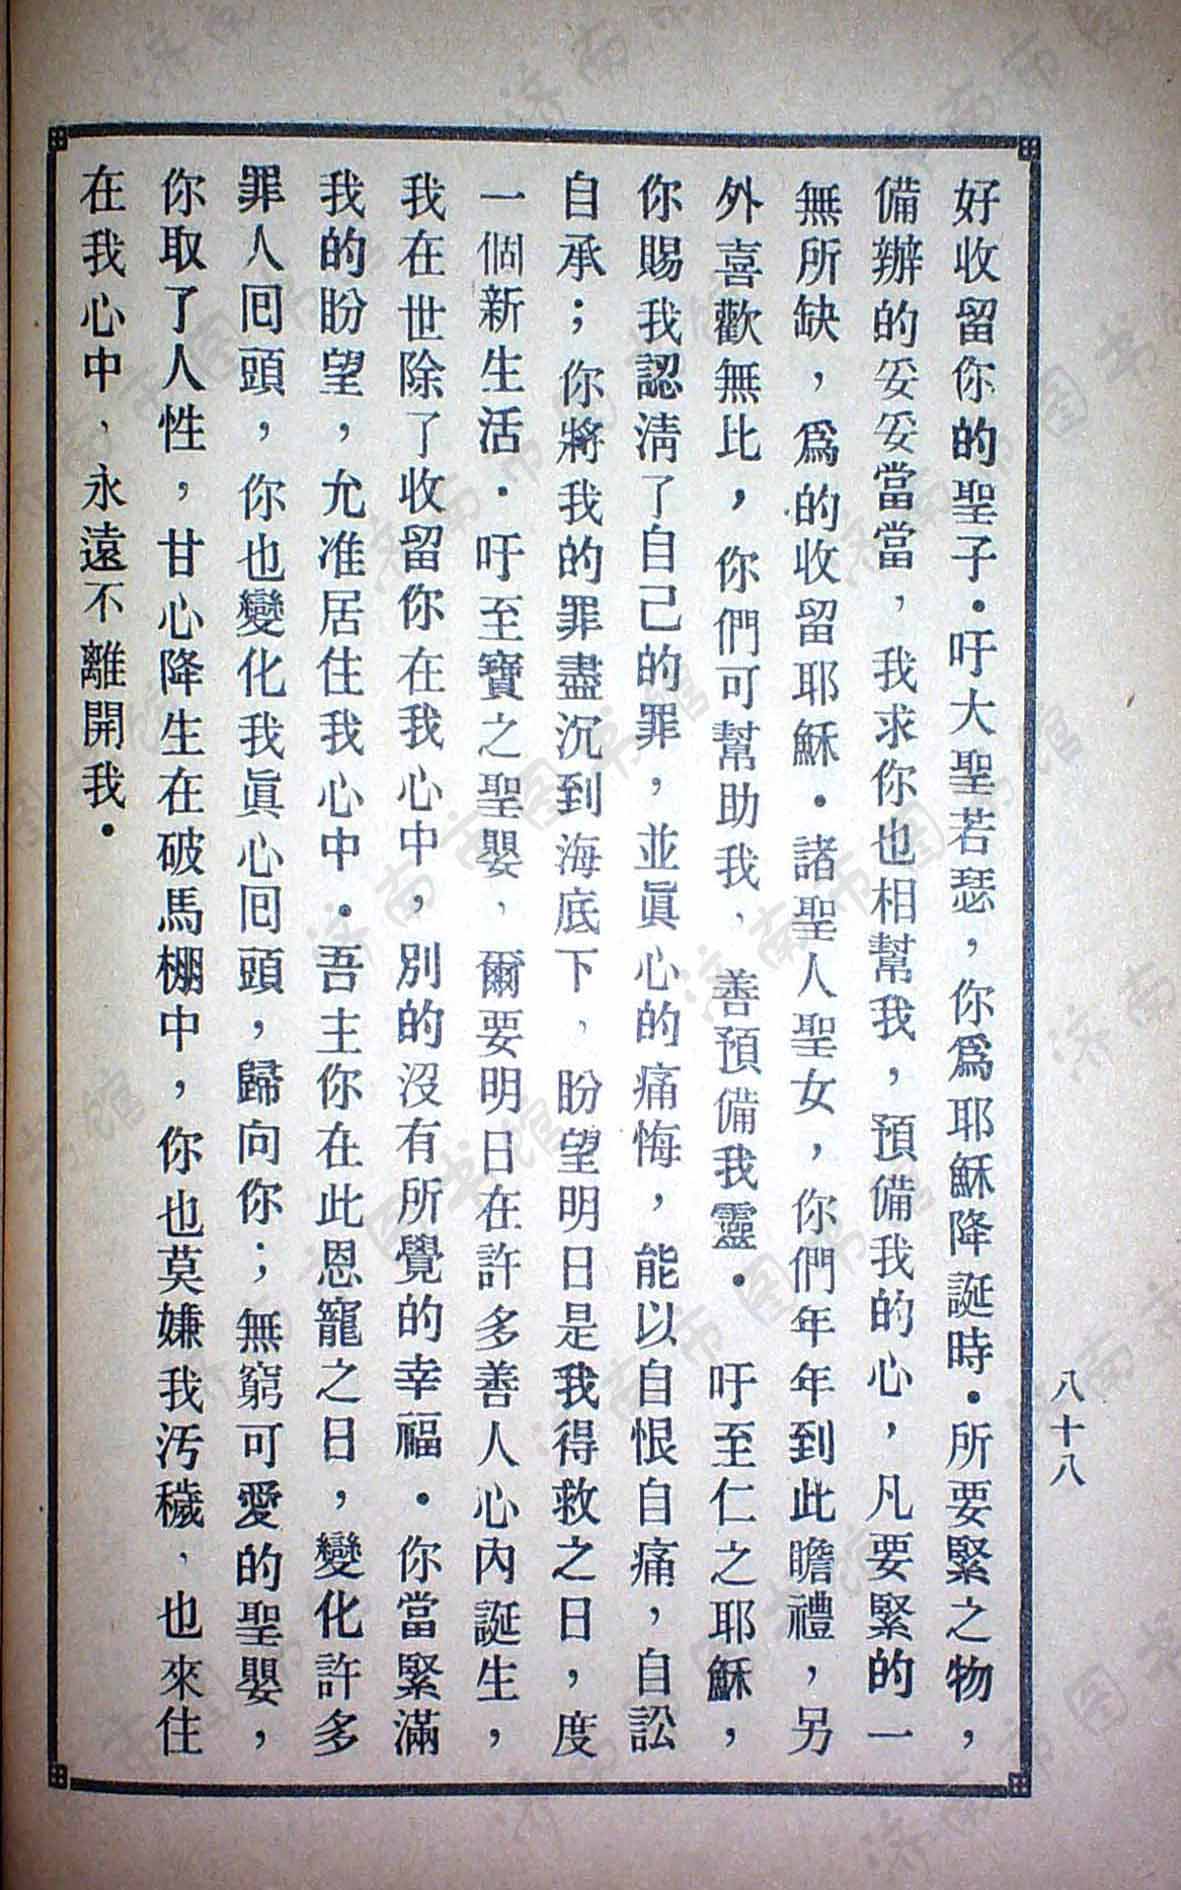 好收留你的聖子．吁大聖若瑟，你爲耶穌降誕時．所要緊之物，
備辦的妥妥當當，我求你也相幫我，預備我的心，凡要緊的一
無所缺，爲的收留耶穌．諸聖人聖女，你們年年到此瞻禮，另
外喜歡無比，你們可幫助我，善預備我靈．　吁至仁之耶穌，
你賜我認淸了自己的罪，並眞心的痛悔，能以自恨自痛，自訟
自承；你將我的罪盡沉到海底下，盼望明日是我得救之日，度
一個新生活．吁至寶之聖嬰，爾要明日在許多善人心內誕生，
我在世除了收留你在我心中，別的沒有所覺的幸福．你當緊滿
我的盼望，允准居住我心中．吾主你在此恩寵之日，變化許多
罪人回頭，你也變化我眞心回頭，歸向你；無窮可愛的聖嬰，
你取了人性，甘心降生在破馬棚中，你也莫嫌我汚穢，也來住
在我心中，永遠不離開我．
八十八
济南市图书馆